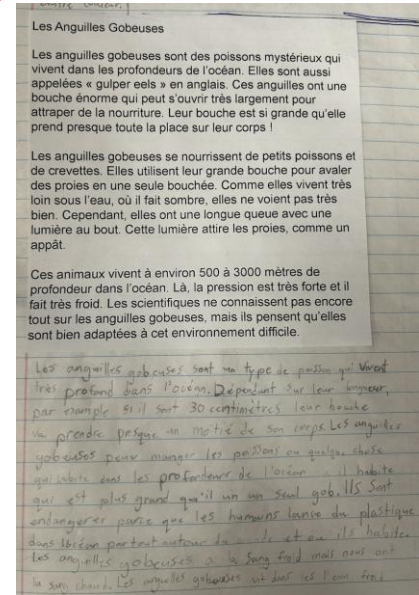 Les Anguilles Gobeuses
Les anguilles gobeuses sont des poissons mystérieux qui
vivent dans les profondeurs de l'océan. Elles sont aussi
appelées « gulper eels » en anglais. Ces anguilles ont une
bouche énorme qui peut s'ouvrir très largement pour
attraper de la nourriture. Leur bouche est si grande qu'elle
prend presque toute la place sur leur corps !
Les anguilles gobeuses se nourrissent de petits poissons et
de crevettes. Elles utilisent leur grande bouche pour avaler
des proies en une seule bouchée. Comme elles vivent très
loin sous l'eau, où il fait sombre, elles ne voient pas très
bien. Cependant, elles ont une longue queue avec une
lumière au bout. Cette lumière attire les proies, comme un
appât.
Ces animaux vivent à environ 500 à 3000 mètres de
profondeur dans l'océan. Là, la pression est très forte et il
fait très froid. Les scientifiques ne connaissent pas encore
tout sur les anguilles gobeuses, mais ils pensent qu'elles
sont bien adaptées à cet environnement difficile.
Les anguilles gobeuses sont un type de qui vivent
très profond dans l'océan. Dépendant sur leur
par example si il sont 30 centimètres leur bouche
va prendre presque un motié de son corps. Les anguilles
gobeuses peux manger les poissons ou quelque chose
qui habite dans les profondeur de l'océan il habite
qui est plus grand qu'il un un seul gob. Ils sont
endangerer parce que les humains lance du plastique
dans l'océan partout autour du et ou ils habite.
Les anguilles gobeuses a la sang froid mais nous ont
la sang chaud. Les anguilles gobeuses vit dans les l'eau froid